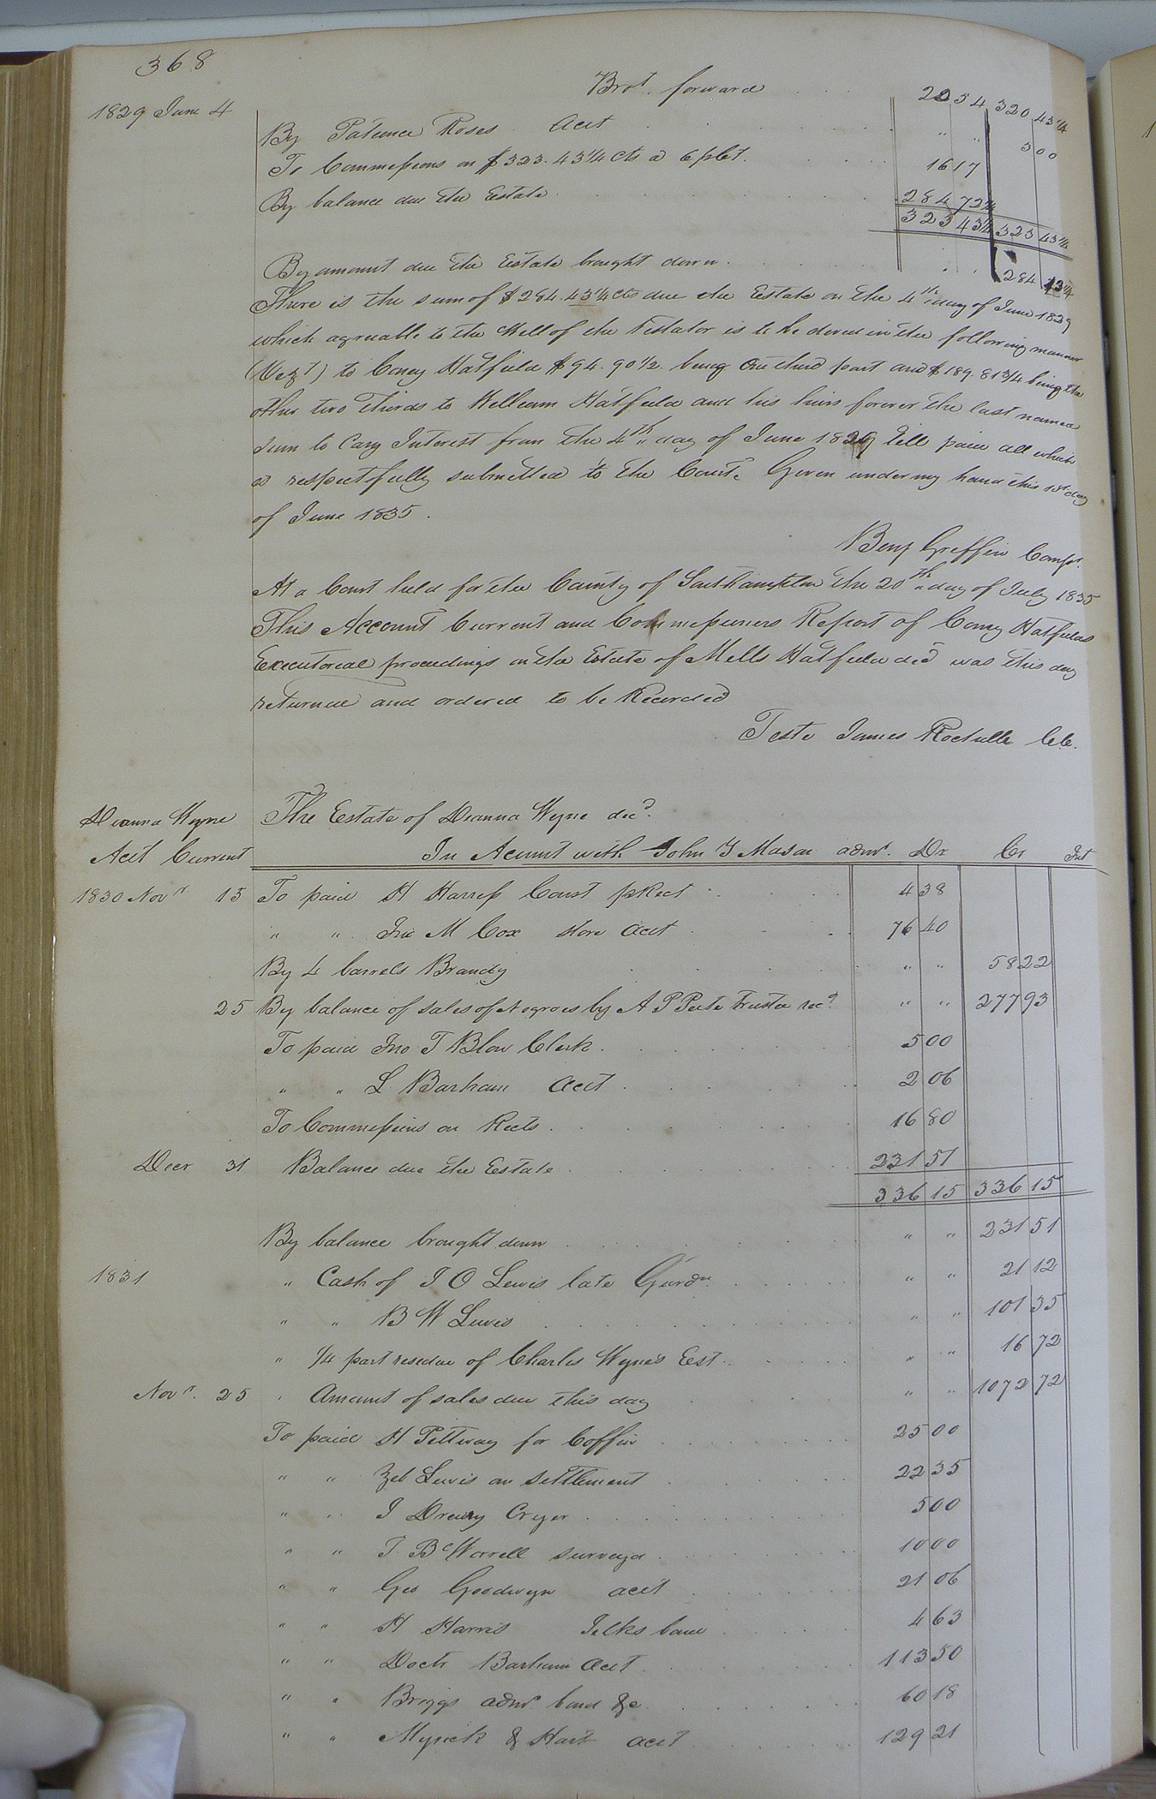 368
Brot. forward 20 54 320 43¼
1829 June 4 By Patience Roses Acct " " 3 00
To Commissions on $323.43¼ cts a 5 pCt. 16 17
By balance due the Estate 284 72¼
323 43¼ 323 43¼
By amount due the Estate brought down 284 43¼
There is the sum of $284.43¼ cts due the Estate on the 4th day of June 1829
which agreeable to the Will of the Testator is to be devided in the following manner
(Vizt) to Coney Hatfield $94.90½ being One third part and $189.81¾ being the
other two thirds to William Hatfield and his heirs forever the last named
sum to Cary Interest from the 4th day of June 1829 till paid all which
is respectfully submitted to the Court. Given under my hand this 15th day
of June 1835.
Benj Griffin Comr.
At a Court held for the County of Southampton the 20th day of July 1835
This Account Current and Commissioners Report of Coney Hatfields
Executorial proceedings on the Estate of Mills Hatfield decd was this day
returned and ordered to be Recorded
Teste James Rochelle Clk.
Dianna Wyne The Estate of Dianna Wyne decd.
Acct Current In Account with John Y Mason admr. Dr Cr Int
1830 Novr 15 To paid H Harriss Const pRect 4 38
" " Jno M Cox store Acct 76 40
By 4 barrels Brandy " " 58 22
25 By balance of sales of Negroes by A P Peete Trustee recd " " 277 93
To paid Jno T Blow Clerk 5 00
" " L Barham Acct 2 06
To Commissions on Rects 16 80
Decr 31 Balance due the Estate 231 51
336 15 336 15
By balance brought down " " 231 51
1831 " Cash of J O Lewis late Guardn " " 21 12
" " B W Lewis " " 101 35
" ¼ part residue of Charles Wynes Est. " " 16 72
Novr. 25 " Amount of sales due this day " " 1072 72
To paid H Pettway for Coffin 25 00
" " Zeb Lewis on settlement 22 35
" " J Drewry Cryer 5 00
" " T B Worrell surveyor 10 00
" " Geo Goodwyn acct 21 06
" " H Harris 4 63
" " Doctr Barham Acct 113 50
" " Briggs admr. bond &c 60 18
" " Myrick & Hart acct 129 21